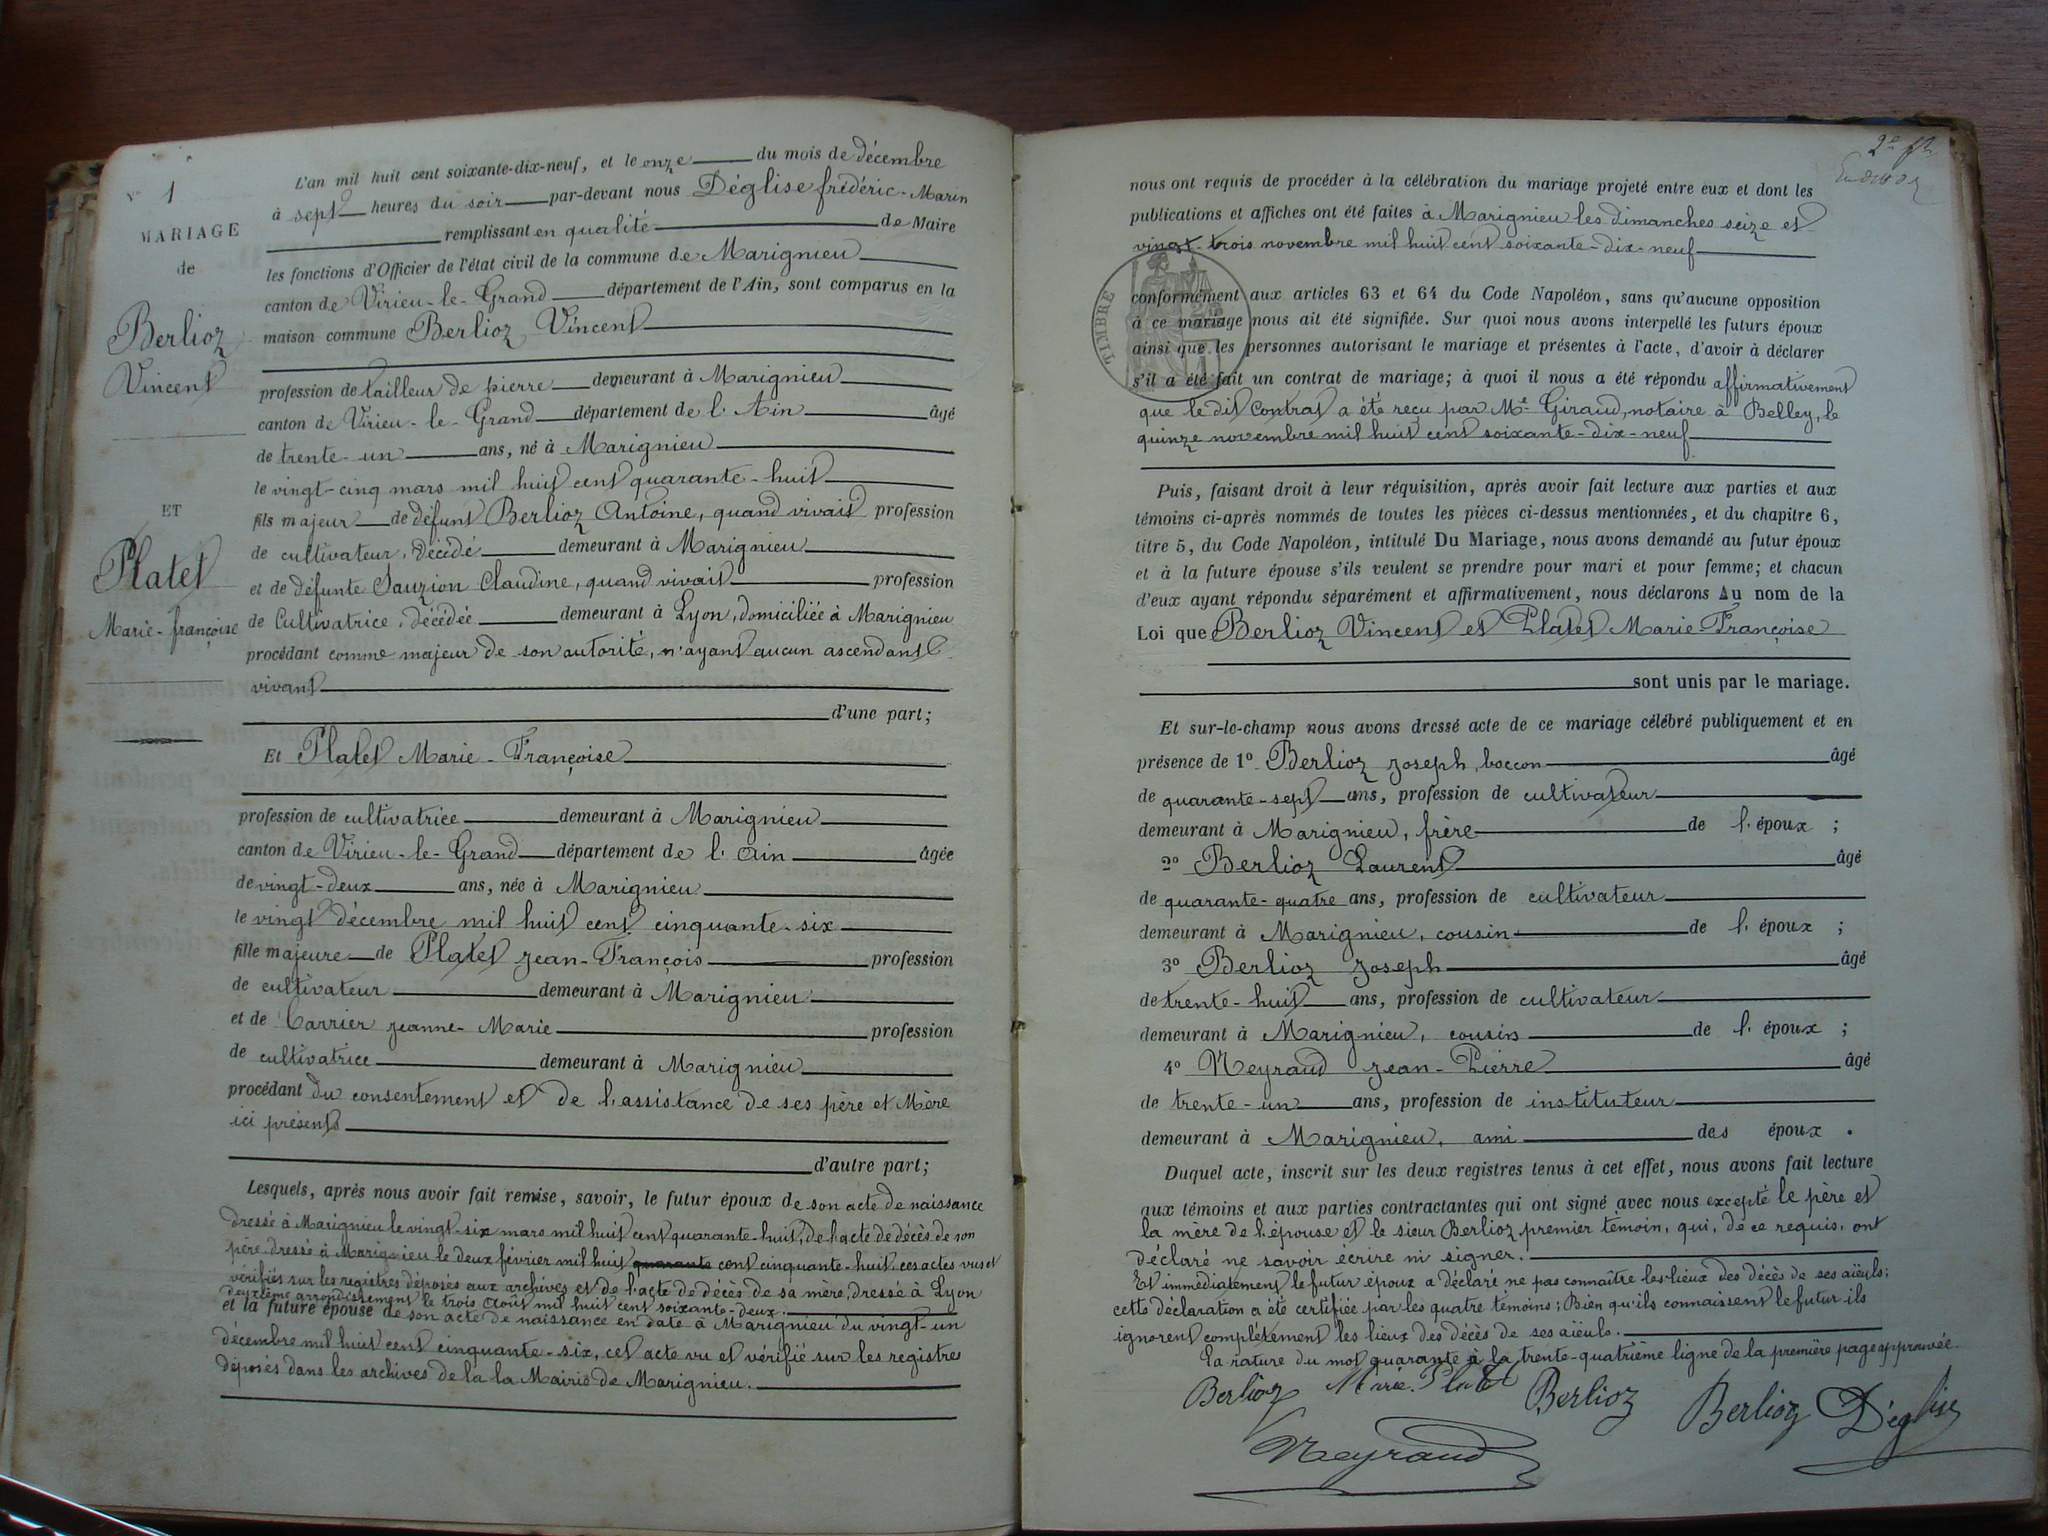 N° 1
MARIAGE
de
Berlioz
Vincent
ET
Platet
Marie-françoise
L'an mil huit cent soixante-dix-neuf, et le onze du mois de décembre
à sept heures du soir par-devant nous Déglise frédéric-Marin
remplissant en qualité de Maire
les fonctions d'Officier de l'état civil de la commune de Marignieu
canton de Virieu-le-Grand département de l'Ain, sont comparus en la
maison commune Berlioz Vincent
profession de tailleur de pierre demeurant à Marignieu
canton de Virieu-le-Grand département de l'Ain âgé
de trente-un ans, né à Marignieu
le vingt-cinq mars mil huit cent quarante-huit
fils majeur de défunt Berlioz Antoine, quand vivait profession
de cultivateur, décédé demeurant à Marignieu
et de défunte Sauzion Claudine, quand vivait profession
de Cultivatrice, décédée demeurant à Lyon, domiciliée à Marignieu
procédant comme majeur de son autorité, n'ayant aucun ascendant
vivant
d'une part;
Et Platet Marie-Françoise
profession de cultivatrice demeurant à Marignieu
canton de Virieu-le-Grand département de l'Ain âgée
de vingt-deux ans, née à Marignieu
le vingt décembre mil huit cent cinquante-six
fille majeure de Platet Jean-François profession
de cultivateur demeurant à Marignieu
et de Carrier Jeanne-Marie profession
de cultivatrice demeurant à Marignieu
procédant du consentement et de l'assistance de ses père et Mère
ici présents
d'autre part;
Lesquels, après nous avoir fait remise, savoir, le futur époux de son acte de naissance
dressé à Marignieu le vingt-six mars mil huit cent quarante-huit, de l'acte de décès de son
père dressé à Marignieu le deux février mil huit quarante cent cinquante-huit ces actes vus et
vérifiés sur les registres déposés aux archives et de l'acte de décès de sa mère, dressé à Lyon
deuxième arrondissement le trois Août mil huit cent soixante-deux.
et la future épouse de son acte de naissance en date à Marignieu du vingt-un
décembre mil huit cent cinquante-six, cet acte vu et vérifié sur les registres
déposés dans les archives de la la Mairie de Marignieu.
2e
nous ont requis de procéder à la célébration du mariage projeté entre eux et dont les
publications et affiches ont été faites à Marignieu les dimanches seize et
vingt-trois novembre mil huit cent soixante-dix-neuf
TIMBRE
conformément aux articles 63 et 64 du Code Napoléon, sans qu'aucune opposition
à ce mariage nous ait été signifiée. Sur quoi nous avons interpellé les futurs époux
ainsi que les personnes autorisant le mariage et présentes à l'acte, d'avoir à déclarer
s'il a été fait un contrat de mariage; à quoi il nous a été répondu affirmativement
que le dit Contrat a été reçu par Me Giraud, notaire à Belley, le
quinze novembre mil huit cent soixante-dix-neuf
Puis, faisant droit à leur réquisition, après avoir fait lecture aux parties et aux
témoins ci-après nommés de toutes les pièces ci-dessus mentionnées, et du chapitre 6,
titre 5, du Code Napoléon, intitulé Du Mariage, nous avons demandé au futur époux
et à la future épouse s'ils veulent se prendre pour mari et pour femme; et chacun
d'eux ayant répondu séparément et affirmativement, nous déclarons Au nom de la
Loi que Berlioz Vincent et Platet Marie-Françoise
sont unis par le mariage.
Et sur-le-champ nous avons dressé acte de ce mariage célébré publiquement et en
présence de 1° Berlioz Joseph, boccon âgé
de quarante-sept ans, profession de cultivateur
demeurant à Marignieu, frère de l'époux ;
2° Berlioz Laurent âgé
de quarante-quatre ans, profession de cultivateur
demeurant à Marignieu, cousin de l'époux ;
3° Berlioz Joseph âgé
de trente-huit ans, profession de cultivateur
demeurant à Marignieu, cousin de l'époux ;
4° Neyraud Jean-Pierre âgé
de trente-un ans, profession de instituteur
demeurant à Marignieu, ami des époux .
Duquel acte, inscrit sur les deux registres tenus à cet effet, nous avons fait lecture
aux témoins et aux parties contractantes qui ont signé avec nous excepté le père et
la mère de l'épouse et le sieur Berlioz premier témoin, qui, de ce requis, ont
déclaré ne savoir écrire ni signer.
Et immédiatement le futur époux a déclaré ne pas connaître les lieux des décès de ses aïeuls;
cette déclaration a été certifiée par les quatre témoins; Bien qu'ils connaissent le futur ils
ignorent complètement les lieux des décès de ses aïeuls.
La rature du mot quarante à la trente-quatrième ligne de la première page approuvée.
Berlioz Marie Platet Berlioz Berlioz Déglise
Neyraud